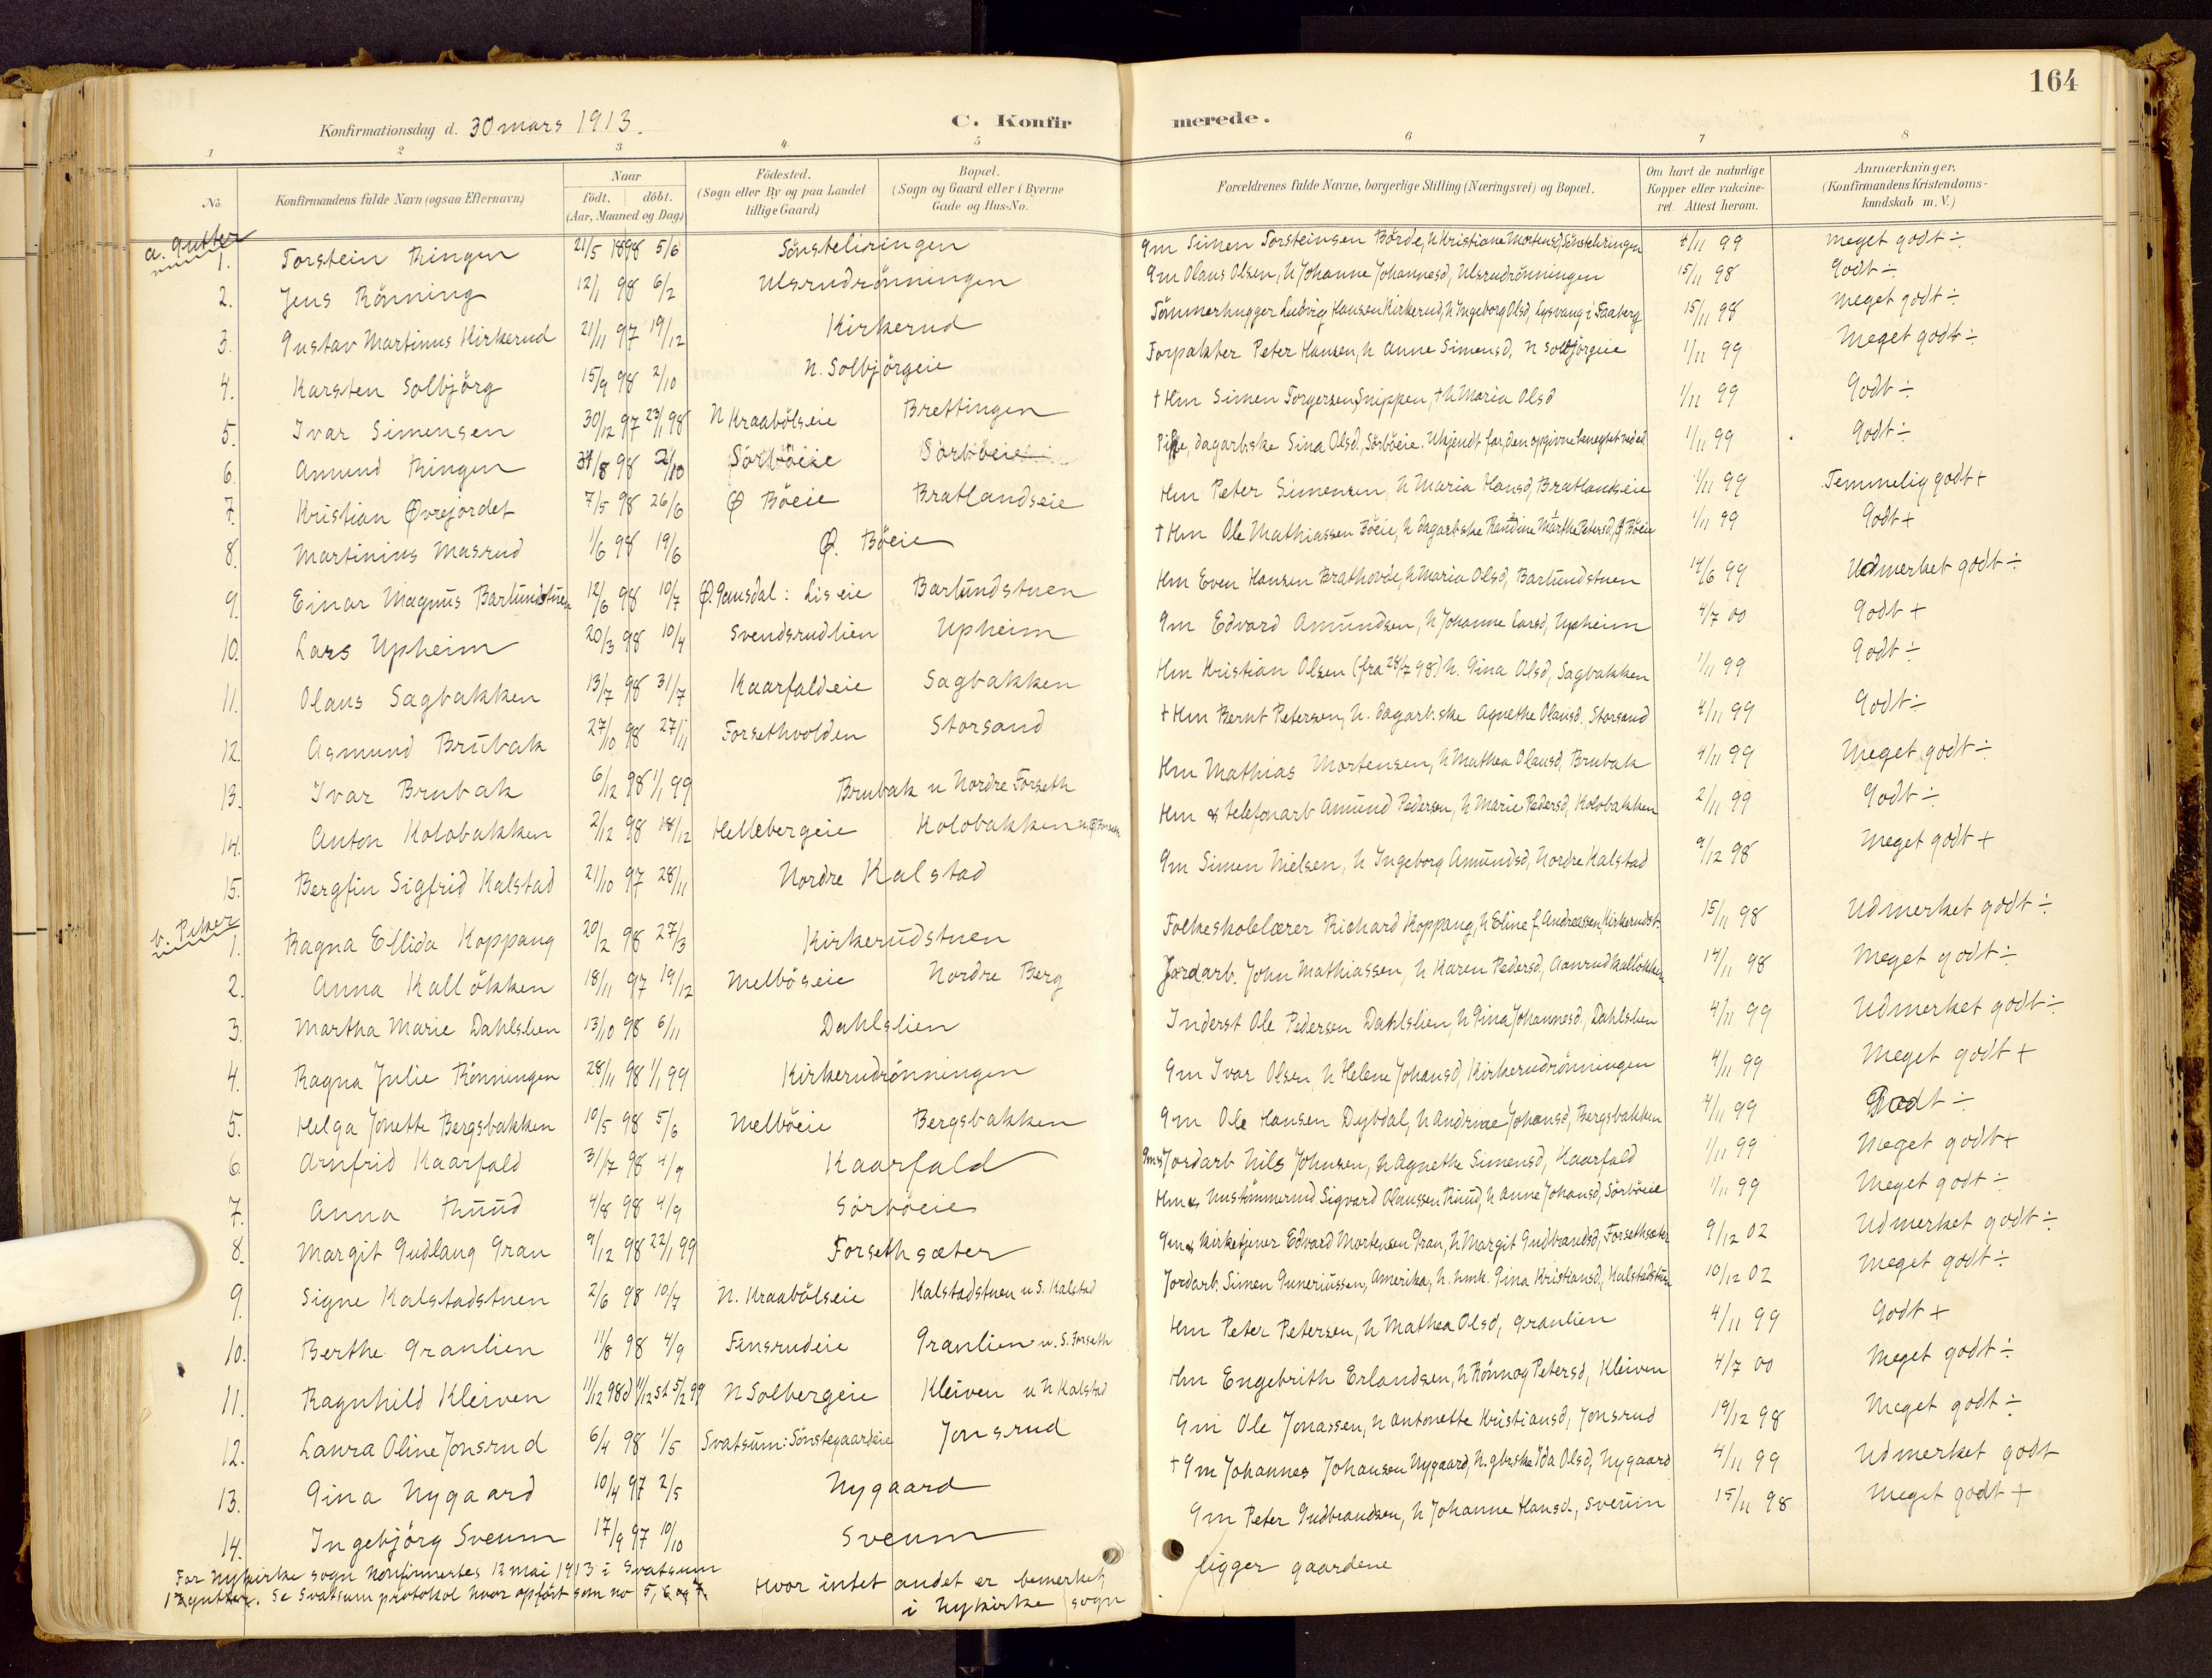 164
Konfirmationsdag d. 30 mars 1913.
C. Konfirmerede.
1 2 3 4 5 6 7 8
No.
Konfirmandens fulde Navn (ogsaa Efternavn)
Naar
födt. döbt.
(Aar, Maaned og Dag)
Födested.
(Sogn eller By og paa Landet
tillige Gaard)
Bopæl.
(Sogn og Gaard eller i Byerne
Gade og Hus-No.
Forældrenes fulde Navne, borgerlige Stilling (Næringsvei) og Bopæl.
Om havt de naturlige
Kopper eller vakcine-
ret. Attest herom.
Anmærkninger.
(Konfirmandens Kristendoms-
kundskab m. V.)
a. Gutter
1. Torstein Ringen 21/5 1898 5/6 Sönsteliringen Gm Simen Torsteinsen Börde, h Kristiane Mortensd, Sönsteliringen 4/11 99 Meget godt ÷
2. Jens Rönning 12/1 98 6/2 Ulsrudrönningen Gm Olaus Olsen, h Johanne Johannesd, Ulsrudrönningen 15/11 98 Godt ÷
3. Gustav Martinus Kirkerud 21/11 97 19/12 Kirkerud Tömmerhugger Ludvig Hansen Kirkerud, h Ingeborg Olsd, Lysvang i Faaberg 15/11 98 Meget godt ÷
4. Karsten Solbjörg 15/9 98 2/10 N. Solbjörgeie Forpakter Peter Hansen, h Anne Simensd, N Solbjörgeie 1/11 99 Meget godt ÷
5. Ivar Simensen 30/12 97 23/1 98 N Kraabölseie Brettingen † Hm Simen Torgersen Snippen, † h Maria Olsd 1/11 99 Godt ÷
6. Amund Ringen 31/8 98 2/10 Sörböeie Sörböeie Pike, dagarbske Sina Olsd, Sörböeie. Ukjendt far, den opgivne benegtet ved ed 1/11 99 Godt ÷
7. Kristian Øvrejordet 7/5 98 26/6 Ø Böeie Bratlandseie Hm Peter Simensen, h Maria Hansd, Bratlandseie 1/11 99 Temmelig godt +
8. Martinius Masrud 1/6 98 19/6 Ø. Böeie † Hm Ole Mathiassen Böeie, h dagarbske Randine Marthe Petersd, Ø Böeie 1/11 99 Godt +
9. Einar Magnus Barlundstuen 12/6 98 10/7 Ø. Gausdal: Liseie Barlundstuen Hm Even Hansen Brathovde, h Maria Olsd, Barlundstuen 14/6 99 Udmerket godt ÷
10. Lars Upheim 20/3 98 10/4 Svendsrudlien Upheim Gm Edvard Amundsen, h Johanne Larsd, Upheim 4/7 00 Godt +
11. Olaus Sagbakken 13/7 98 31/7 Kaarfaldeie Sagbakken Hm Kristian Olsen (fra 28/7 98) h. Gina Olsd, Sagbakken 1/11 99 Godt ÷
12. Asmund Brubak 27/10 98 27/11 Forsethvolden Storsand † Hm Bernt Petersen, h. dagarb.ske Agnethe Olausd, Storsand 4/11 99 Godt ÷
13. Ivar Brubak 6/12 98 1/1 99 Brubak u Nordre Forseth Hm Mathias Mortensen, h Mathea Olausd, Brubak 4/11 99 Meget godt ÷
14. Anton Kolobakken 2/12 98 18/12 Hellebergeie Kolobakken u. Ø Forseth Hm & telefonarb Amund Pedersen, h Marie Pedersd, Kolobakken 2/11 99 Godt ÷
15. Bergfin Sigfrid Kalstad 21/10 97 28/11 Nordre Kalstad Gm Simen Nielsen, h Ingeborg Amundsd, Nordre Kalstad 9/12 98 Meget godt +
b. Piker
1. Ragna Ellida Koppang 20/2 98 27/3 Kirkerudstuen Folkeskolelærer Richard Koppang, h Eline f. Andreassen, Kirkerudst. 15/11 98 Udmerket godt ÷
2. Anna Kallökken 18/11 97 19/12 Melböseie Nordre Berg Jordarb. John Mathiassen, h Karen Pedersd, Aanrudkallökken 14/11 98 Meget godt ÷
3. Martha Marie Dahlslien 13/10 98 6/11 Dahlslien Inderst Ole Pedersen Dahlslien, h Gina Johannesd, Dahlslien 4/11 99 Udmerket godt ÷
4. Ragna Julie Rönningen 28/11 98 1/1 99 Kirkerudrönningen Gm Ivar Olsen, h Helene Johansd, Kirkerudrönningen 4/11 99 Meget godt +
5. Helga Jonette Bergsbakken 10/5 98 5/6 Melböeie Bergsbakken Gm Ole Hansen Dybdal, h Andrine Johansd, Bergsbakken 4/11 99 Godt ÷
6. Arnfrid Kaarfald 31/7 98 4/9 Kaarfald Gm & Jordarb Nils Johnsen, h Agnethe Simensd, Kaarfald 1/11 99 Meget godt +
7. Anna Ruud 4/8 98 4/9 Sörböeie Hm & hustömmermd Sigvard Olaussen Ruud, h Anne Johansd, Sörböeie 1/11 99 Meget godt ÷
8. Margit Gudlaug Gran 9/12 98 22/1 99 Forsethsæter Gm & Kirketjener Edvard Mortensen Gran, h Margit Gudbrandsd, Forsethsæter 9/12 02 Udmerket godt ÷
9. Signe Kalstadstuen 2/6 98 10/7 N. Kraabölseie Kalstadstuen u S. Kalstad Jordarb. Simen Guneriussen, Amerika, h. hmk. Gina Kristiansd, Kalstadstuen 10/12 02 Meget godt ÷
10. Berthe Granlien 11/8 98 4/9 Finsrudeie Granlien u. S. Forseth Hm Peter Petersen, h Mathea Olsd, Granlien 4/11 99 Godt +
11. Ragnhild Kleiven 11/12 98 d 11/12 st 5/2 99 N Solbergeie Kleiven u N Kalstad Hm Engebrith Erlandsen, h Rönnog Petersd, Kleiven 4/7 00 Meget godt ÷
12. Laura Oline Jonsrud 6/4 98 1/5 Svatsum: Sönstegaardeie Jonsrud Gm Ole Jonassen, h Antonette Kristiansd, Jonsrud 19/12 98 Meget godt ÷
13. Gina Nygaard 10/4 97 2/5 Nygaard † Gm Johannes Johansen Nygaard, h. gbrske Ida Olsd, Nygaard 4/11 99 Udmerket godt
14. Ingebjörg Sveum 17/9 97 10/10 Sveum Gm Peter Gudbrandsen, h Johanne Hansd, Sveum 15/11 98 Meget godt +
For Nykirke sogn konfirmertes 12 mai 1913 i Svatsum
gutter. Se Svatsum protokol hvor opfört som no 5, 6 og 7.
Hvor intet andet er bemerket, ligger gaardene
i Nykirke sogn